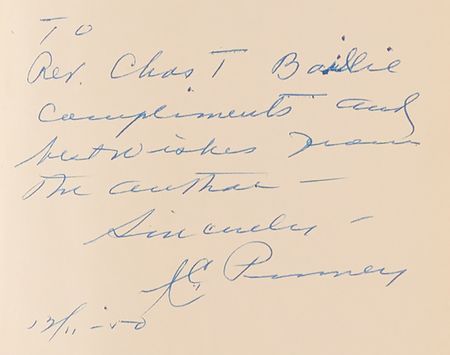 To
Rev. Chas T Baillie
Compliments and
best wishes from
the author —
Sincerely —
Penney
12/11-50